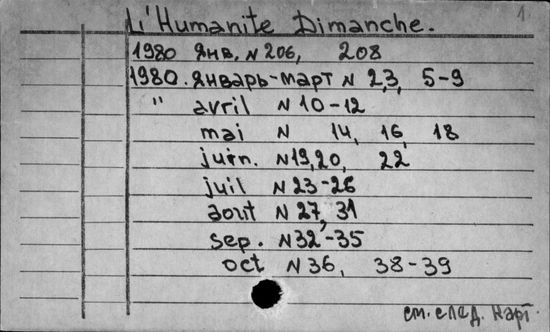 1.
L'Humanite Dimanche.
1980 янв. N 206, 208
1980. январь-март N 2,3, 5-9
" avril N 10-12
mai N 14, 16, 18
juin. N19,20, 22
juil N 23-26
aout N 27, 31
sep. N32-35
oct N 36, 38-39
см. след. карт.